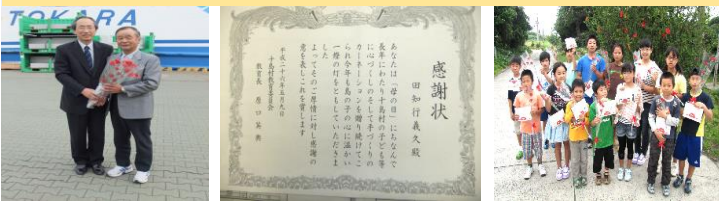 TOKARA
感謝状
田知行義久殿
あなたは「母の日」にちなんで
長年にわたり十島村の子ども等
に心づくしのそして手づくりの
カーネーションを贈り続けてこ
られ今年も島の子の心に温かい
一燈の灯をともしていただきま
した
よってそのご厚情に対し感謝の
意を表しこれを賞します
平成二十六年五月九日
十島村教育委員会
教育長 原口英典